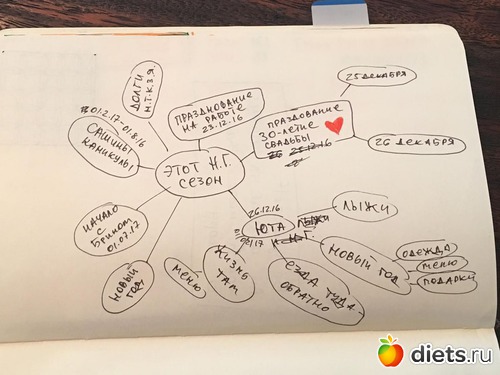 ДОЛГИ
Н.Т.К.З.Я
01.2.17-01.8.16
САШИНЫ
КАНИКУЛЫ
ПРАЗДНОВАНИЕ
НА РАБОТЕ
23.12.16
ПРАЗДОВАНИЕ
30-ЛЕТИЕ
СВАДЬБЫ
25 ДЕКАБРЯ
26 ДЕКАБРЯ
ЭТОТ Н.Г.
СЕЗОН
НАЧАЛО
С
БРИНОМ
01.07.17
НОВЫЙ
ГОД
МЕНЮ
ЖИЗНЬ
ТАМ
26.12.16
ЮТА
ЛЫЖИ
ЛЫЖИ
НОВЫЙ ГОД
ОДЕЖДА
МЕНЮ
ПОДАРКИ
ЕЗДА ТУДА-
ОБРАТНО
diets.ru